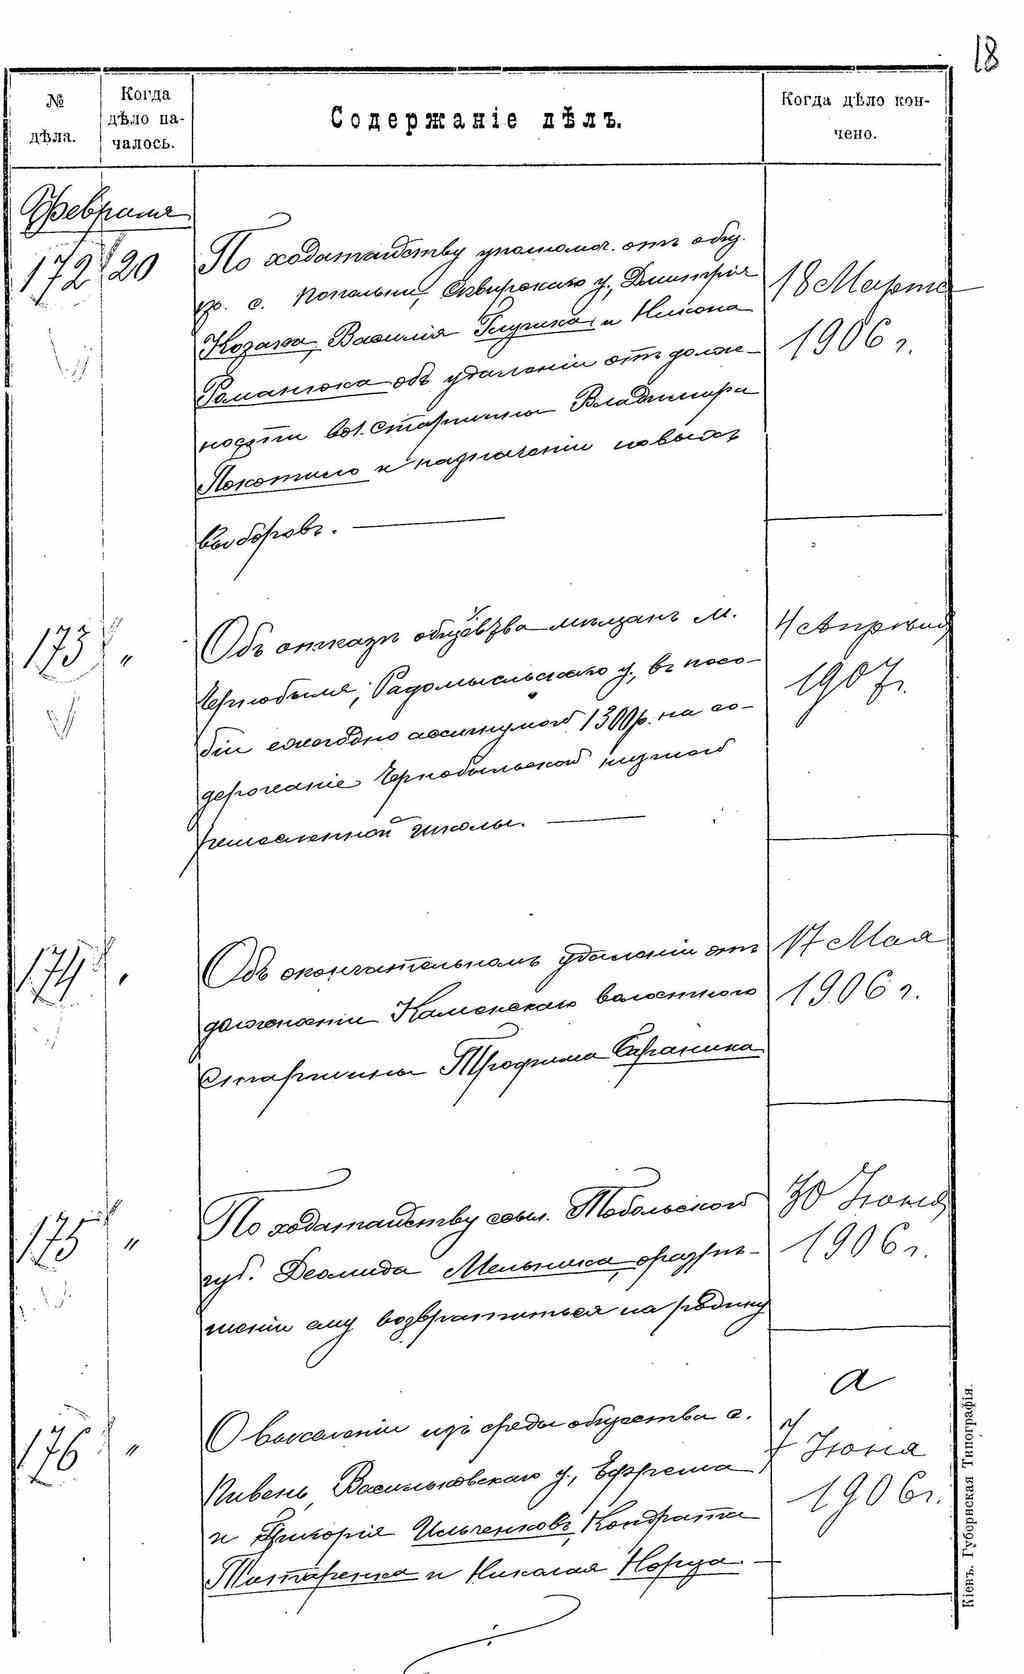 18
№ дѣла.
Когда дѣло началось.
Содержаніе дѣлъ.
Когда дѣло кончено.
Февраля
172 20
По ходатайству уполномоч. отъ общ.
кр. с. Попельни, Сквирскаго у., Дмитрія
Козака, Василія Глущика и Никона
Романюка объ удаленіи отъ долж-
ности вол. старшины Владиміра
Покотило и назначеніи новыхъ
выборовъ.
18 Марта
1906 г.
173 "
Объ отказѣ общества мѣщанъ м.
Чернобыля, Радомысльскаго у., въ посо-
біи ежегодно ассигнуемой 1300 р. на со-
держаніе Чернобыльской низшей
ремесленной школы.
4 Апрѣля
1907 г.
174 "
Объ окончательномъ удаленіи отъ
должности Каменскаго волостного
старшины Трофима Бараника
17 Мая
1906 г.
175 "
По ходатайству ссыл. Тобольской
губ. Деомида Мельника, о разрѣ-
шеніи ему возвратиться на родину
30 Іюня
1906 г.
176 "
О выселеніи изъ среды общества с.
Пивень, Васильковскаго у., Ефрема
и Григорія Ильченковъ, Кондрата
Татаренка и Николая Норца.
а
7 Іюня
1906 г.
Кіевъ. Губернская Типографія.